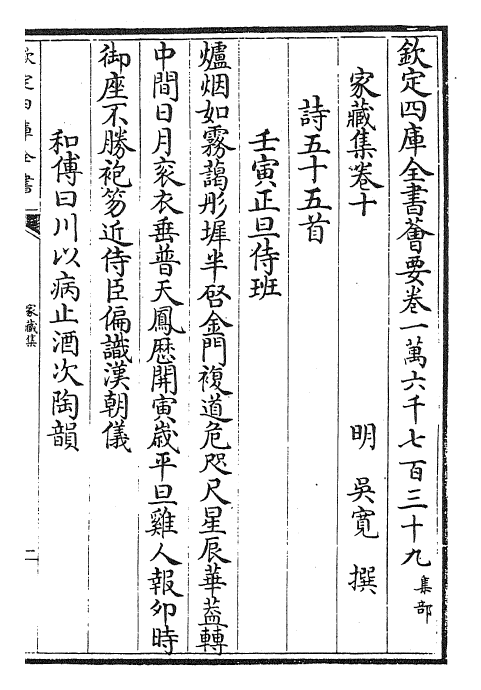 欽定四庫全書薈要卷一萬六千七百三十九 集部
家藏集卷十 明 吳寬 撰
詩五十五首
壬寅正旦侍班
爐烟如霧藹彤墀半啓金門複道危咫尺星辰華葢轉
中間日月衮衣垂普天鳳厯開寅嵗平旦雞人報夘時
御座不勝袍笏近侍臣偏識漢朝儀
和傅曰川以病止酒次陶韻
欽定四庫全書
家藏集